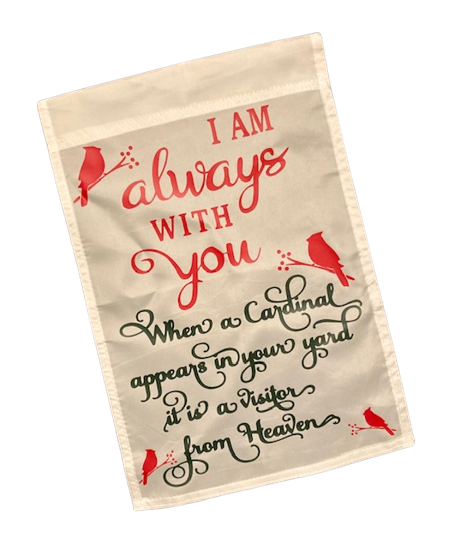 I AM
always
WITH
you
When a Cardinal
appears in your yard
it is a visitor
from Heaven